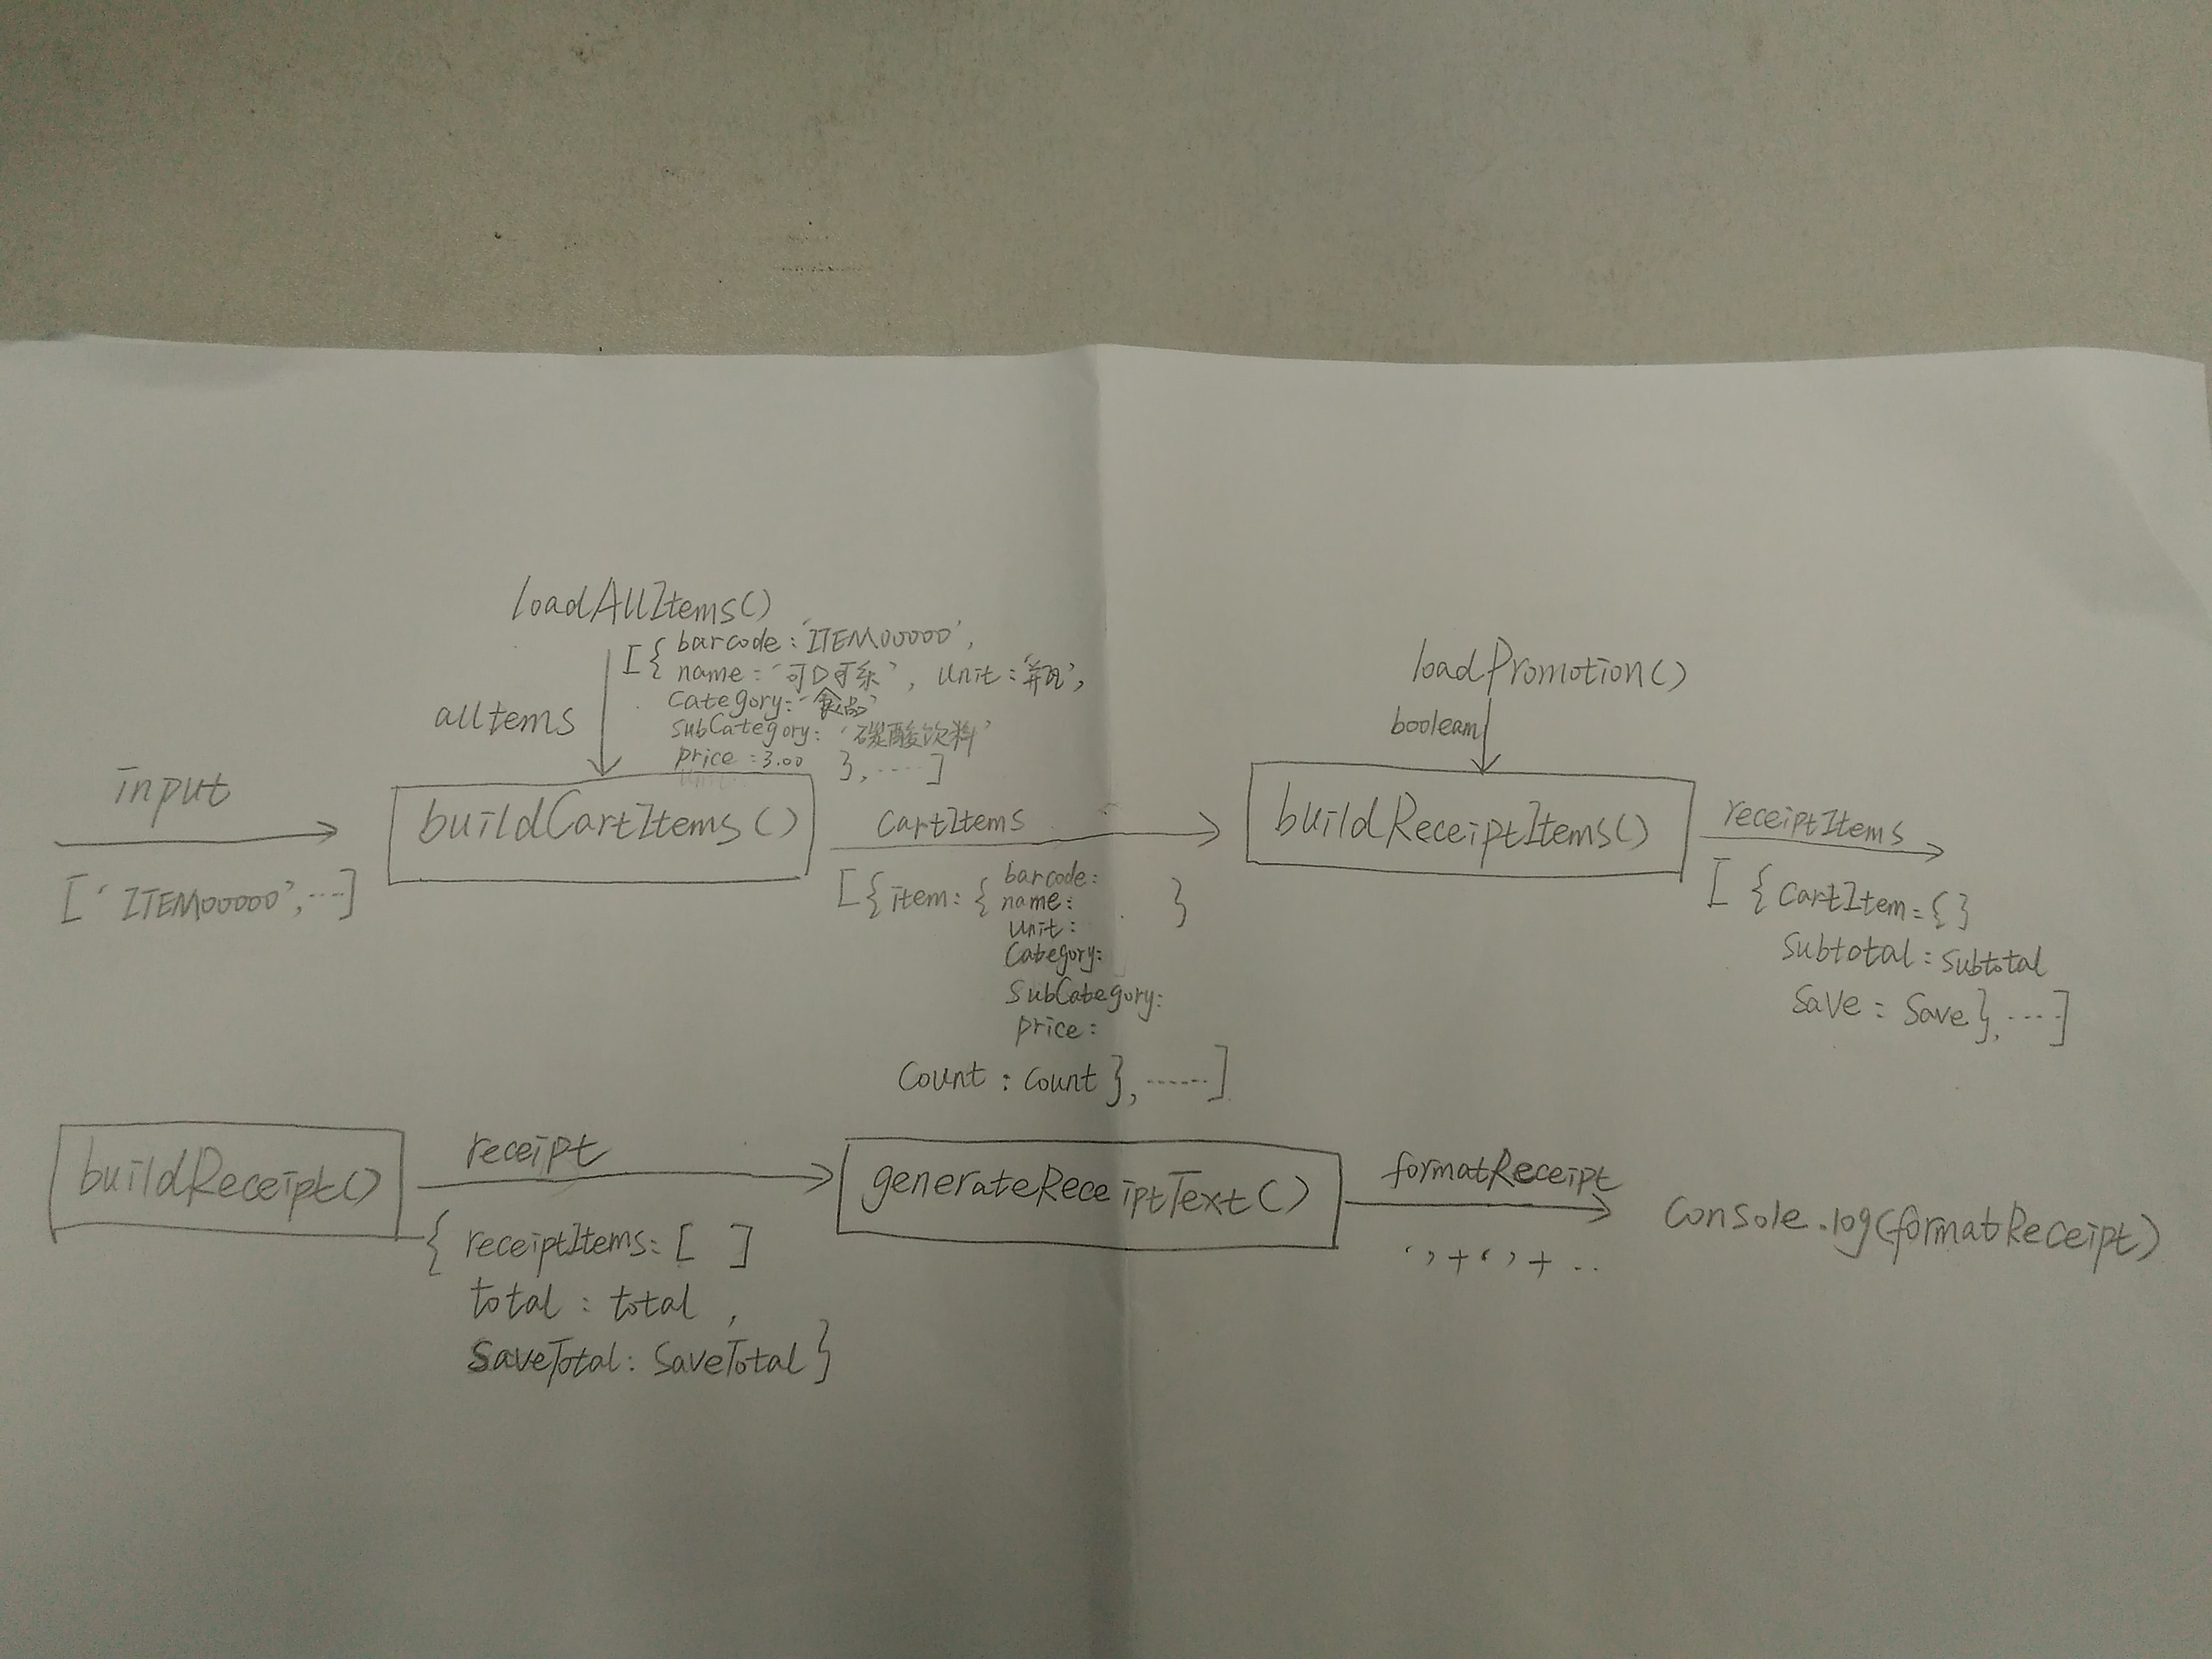 loadAllItems()
[{ barcode: 'ITEM00000',
name: '可口可乐', unit: '瓶',
category: '食品'
subCategory: '碳酸饮料'
price: 3.00 }, ...... ]
allItems
loadPromotion()
boolean
input
['ITEM00000', ....]
buildCartItems()
cartItems
[{ item: { barcode:
name: }
unit:
Category:
SubCategory:
price:
Count: Count }, ...... ]
buildReceiptItems()
receiptItems
[ { CartItem: { }
Subtotal: Subtotal
Save: Save }, .... ]
buildReceipt()
receipt
{ receiptItems: [ ]
total: total,
SaveTotal: SaveTotal }
generateReceiptText()
formatReceipt
' ' + ' ' + ..
Console.log(formatReceipt)